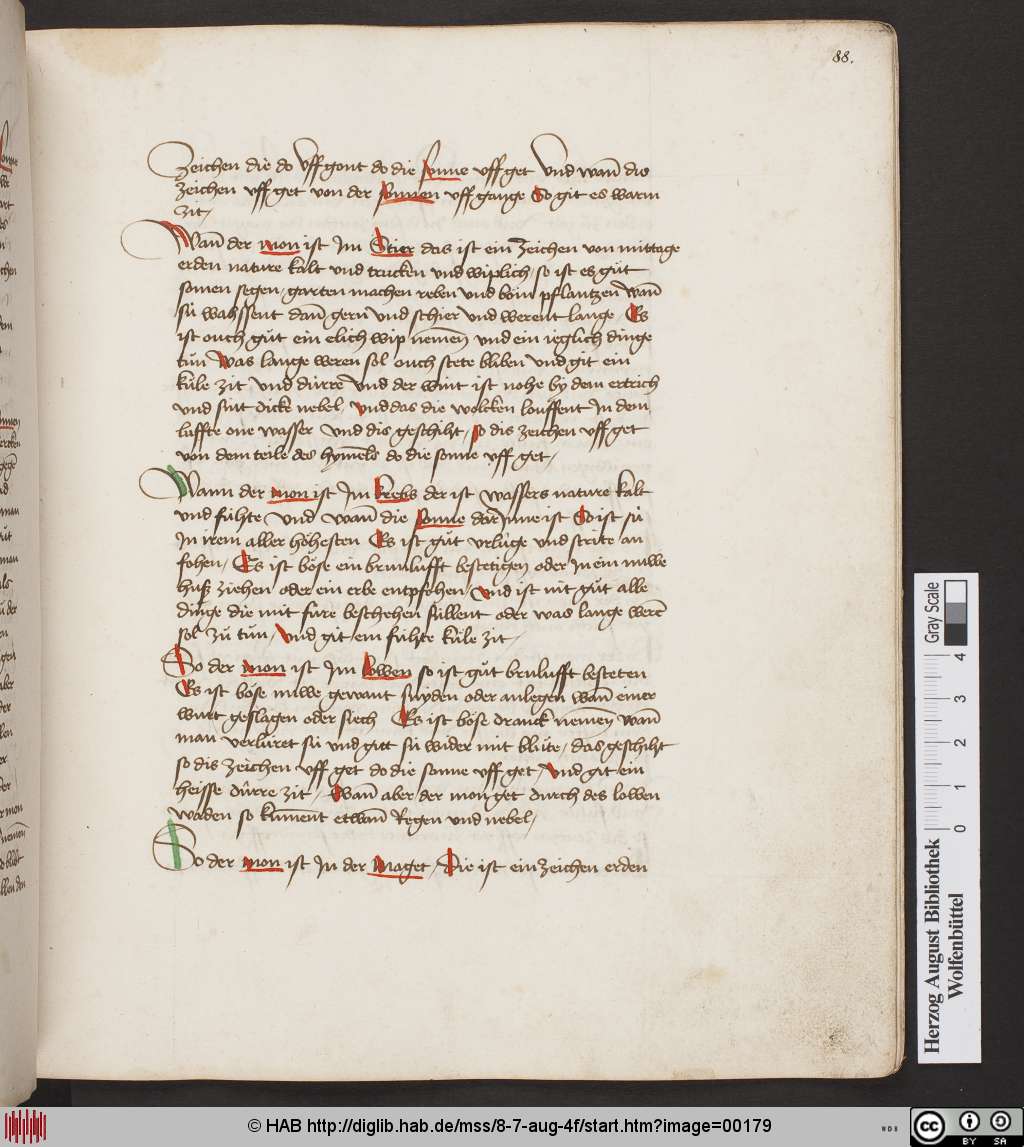 88.
Zeichen die do vff gont do die sonne vff get Vnd wan̄ die
zeichen vff get von der sonnen vff gange So git es warm
zit /
Wan̄ der mon ist Im Stier das ist ein zeichen von mittage
erden nature kalt vnd trucken vnd wiplich / so ist es gůt
somen segen / garten machen reben vnd böm pflantzen wan̄
sü wahssent dan̄ gern vnd schier vnd werent lange / Es
ist ouch gůt ein elich wip nemen̄ vnd ein ieglich dinge
tůn Was lange weren sol ouch stete bliben vnd git ein
küle zit vnd dürre vnd der wint ist nohe by dem ertrich
vnd sint dicke nebel / vnd das die wolcken louffent In dem
luffte one wasser vnd dis geschiht / so dis zeichen vff get
von dem teile des hymels do die sonne vff get /
Wann der mon ist Im krebs der ist wassers nature kalt
vnd fühte vnd wan̄ die sonne dar Jnne ist So ist sü
In irem aller höhesten Es ist gůt vrlüge vnd strite an
fohen / Es ist böse ein brunlufft bestetigen oder In ein nuwe
huß ziehen oder ein erbe entpfohen / vnd ist nit gůt alle
dinge die mit füre beschehen süllent oder was lange weren̄
sol zů tůn / vnd git ein fühte küle zit /
So der mon ist Im lowen so ist gůt brulufft besteten
Es ist böse nuwe gewant snyden oder anlegen wan̄ einer
wurt geslagen oder siech Es ist böse dranck nemen̄ wan̄
man verlüret sü vnd gitt sü wider mit blůte / das geschiht
so dis zeichen vff get do die sonne vff get / vnd git ein
heisse dürre zit / wan̄ aber der mon get durch des lowen
waden so kum̄ent etwan̄ Regen vnd nebel /
So der mon ist In der Maget / Die ist ein zeichen erden
Gray Scale
4
3
2
1
0
Herzog August Bibliothek
Wolfenbüttel
© HAB http://diglib.hab.de/mss/8-7-aug-4f/start.htm?image=00179
WDB
cc BY SA